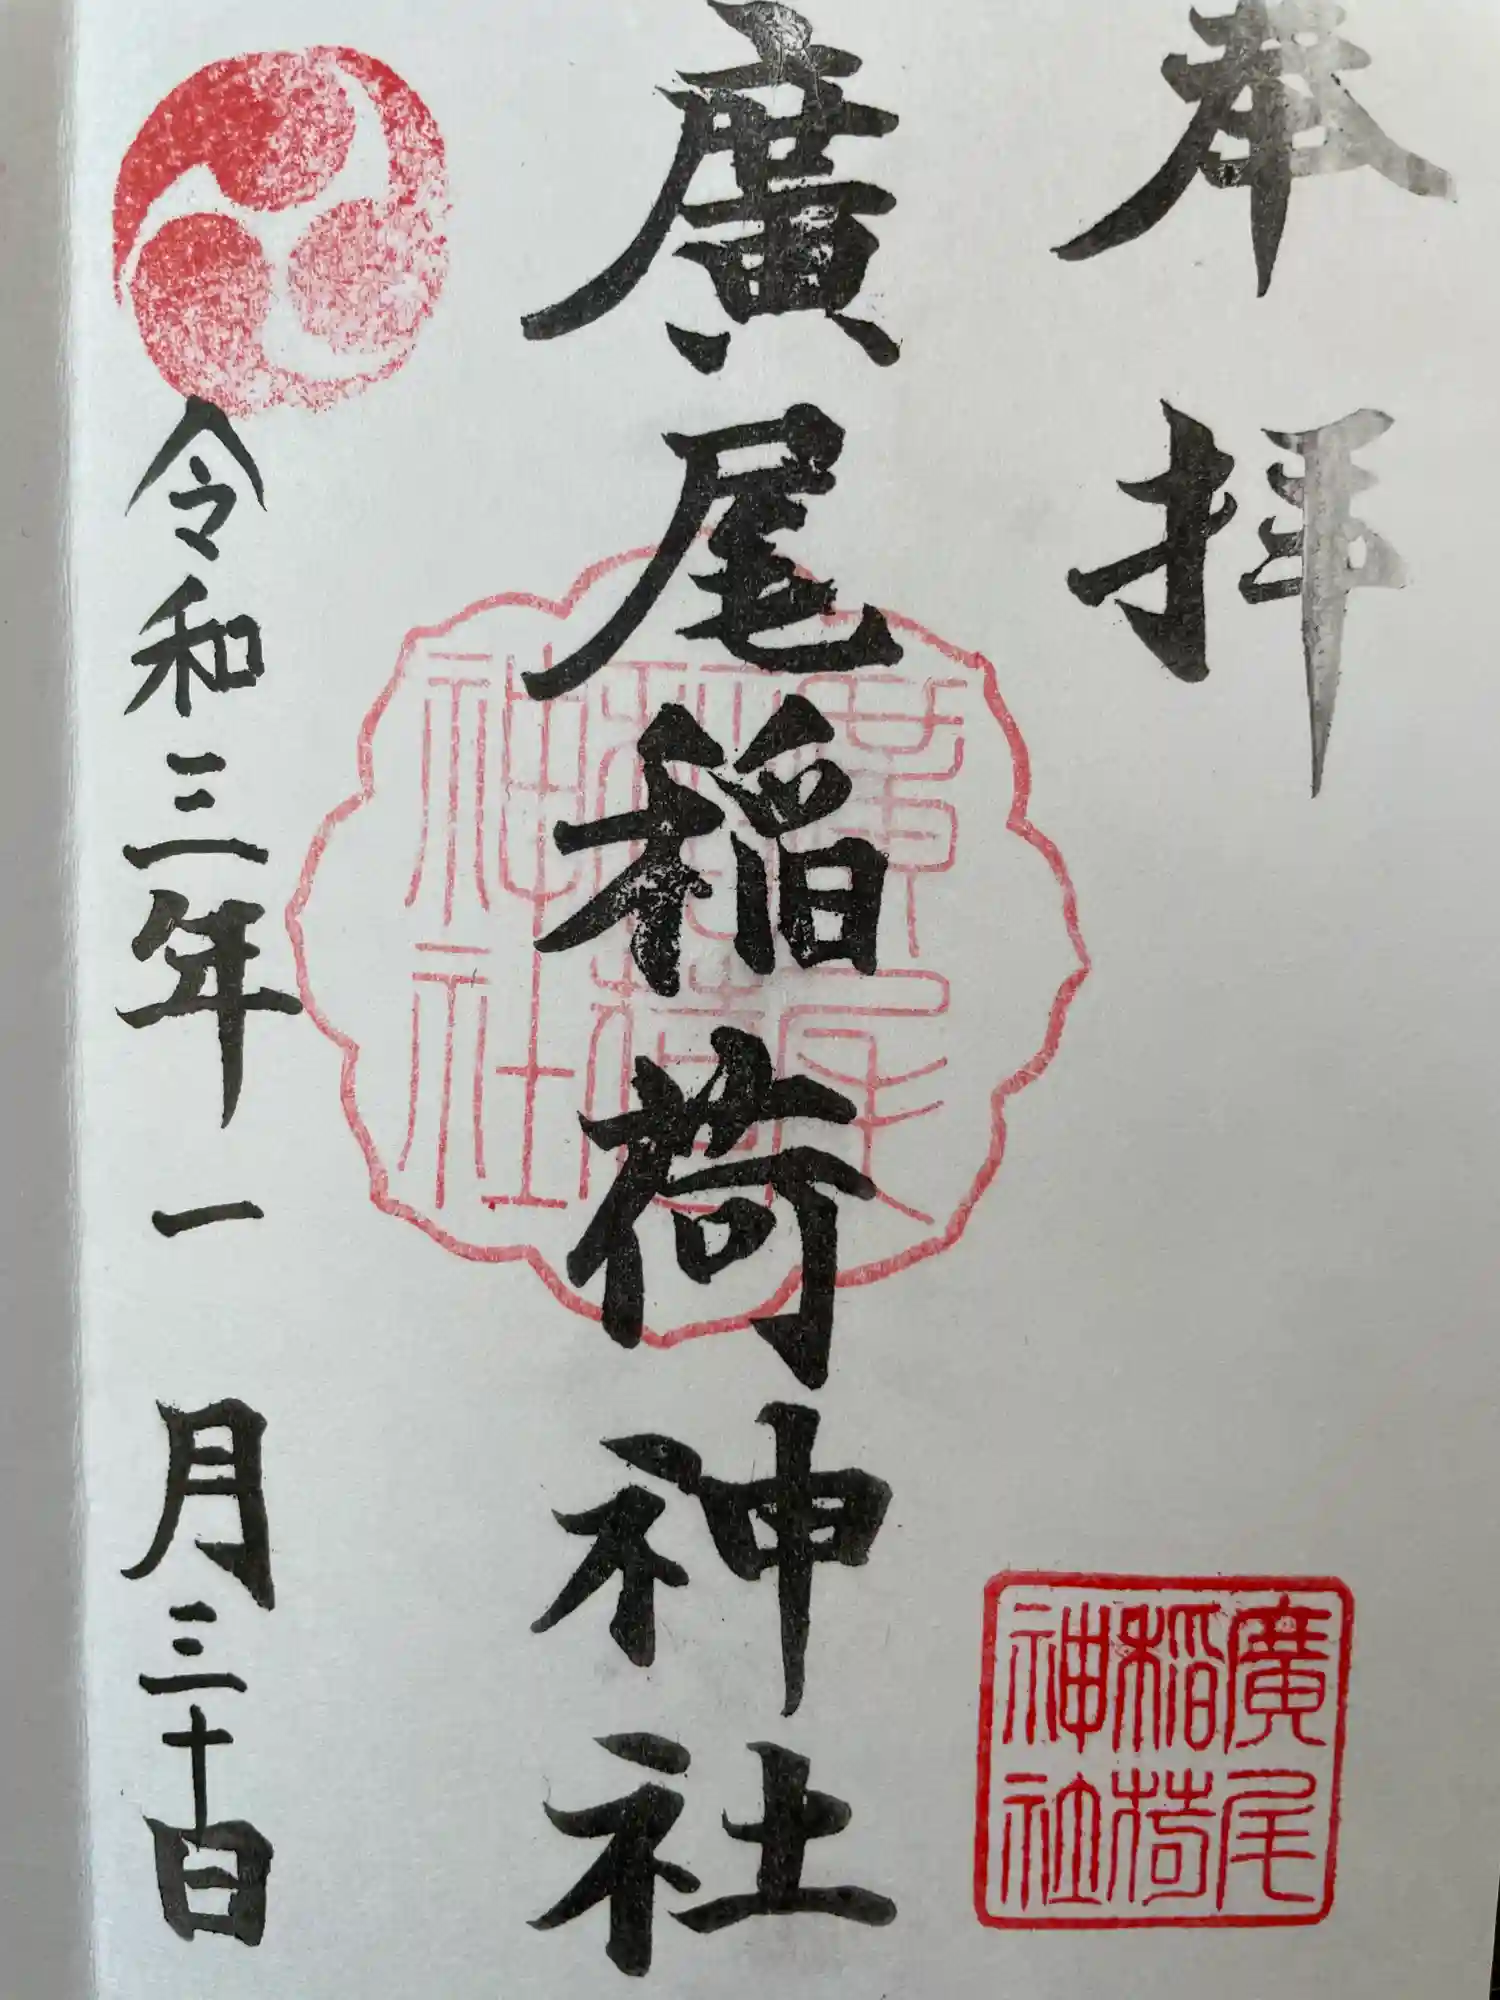 奉拝
廣尾稲荷神社
令和三年一月三十日
廣尾
稲荷
神社
廣尾
稲荷
神社